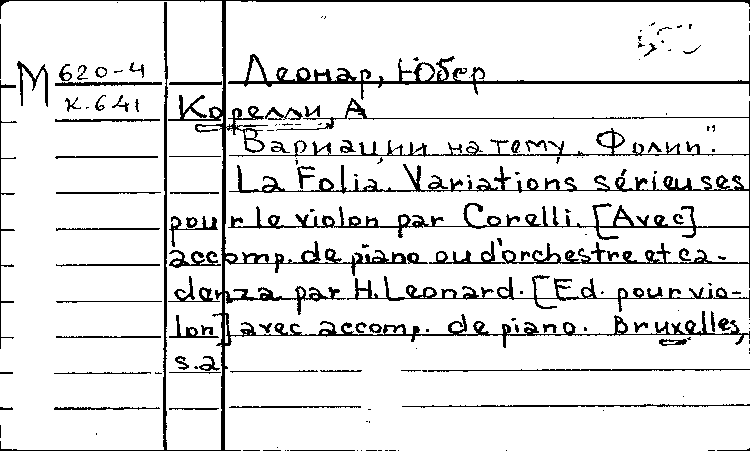 М 620-4 Леонар, Юбер
К.641 Корелли, А
Вариации на тему „Фолии".
La Folia. Variations sérieuses
pour le violon par Corelli. [Avec]
accomp. de piano ou d'orchestre et ca-
denza par H. Leonard. [Ed. pour vio-
lon] avec accomp. de piano. Bruxelles,
s.a.